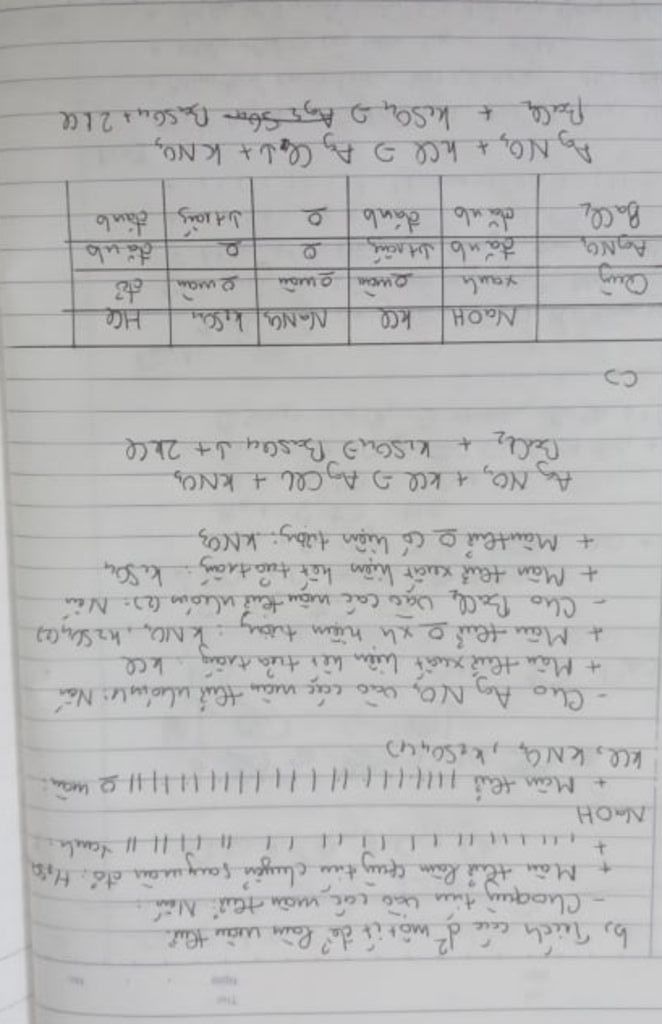 b, Trích các d² một ít để làm mẫu thử.
- Cho quỳ tím vào các mẫu thử. Nếu:
+ Mẫu thử làm quỳ tím chuyển sang màu đỏ: H₂SO₄
+ ıı ıı ıı ıı ıı ıı ıı ıı xanh:
NaOH
+ Mẫu thử ıı ıı ıı ıı ıı ıı ıı ıı 0 màu:
KCl, KNO₃, K₂SO₄ (1)
- Cho AgNO₃ vào các mẫu thử nhóm 1: Nếu
+ Mẫu thử xuất hiện kết tủa trắng: KCl
+ Mẫu thử 0 xh hiện tượng: KNO₃, K₂SO₄ (2)
- Cho BaCl₂ vào các mẫu thử nhóm (2): Nếu
+ Mẫu thử xuất hiện kết tủa trắng: K₂SO₄
+ Mẫu thử 0 có hiện tượng: KNO₃
AgNO₃ + KCl → AgCl + KNO₃
BaCl₂ + K₂SO₄ → BaSO₄ ↓ + 2KCl
c)
NaOH KCl NaNO₃ K₂SO₄ HCl
Quỳ xanh 0 màu 0 màu 0 màu đỏ
AgNO₃ đánh ↓ trắng 0 0 đánh
BaCl₂ đánh đánh 0 ↓ trắng đánh
AgNO₃ + KCl → AgCl ↓ + KNO₃
BaCl₂ + K₂SO₄ → BaSO₄ + 2KCl